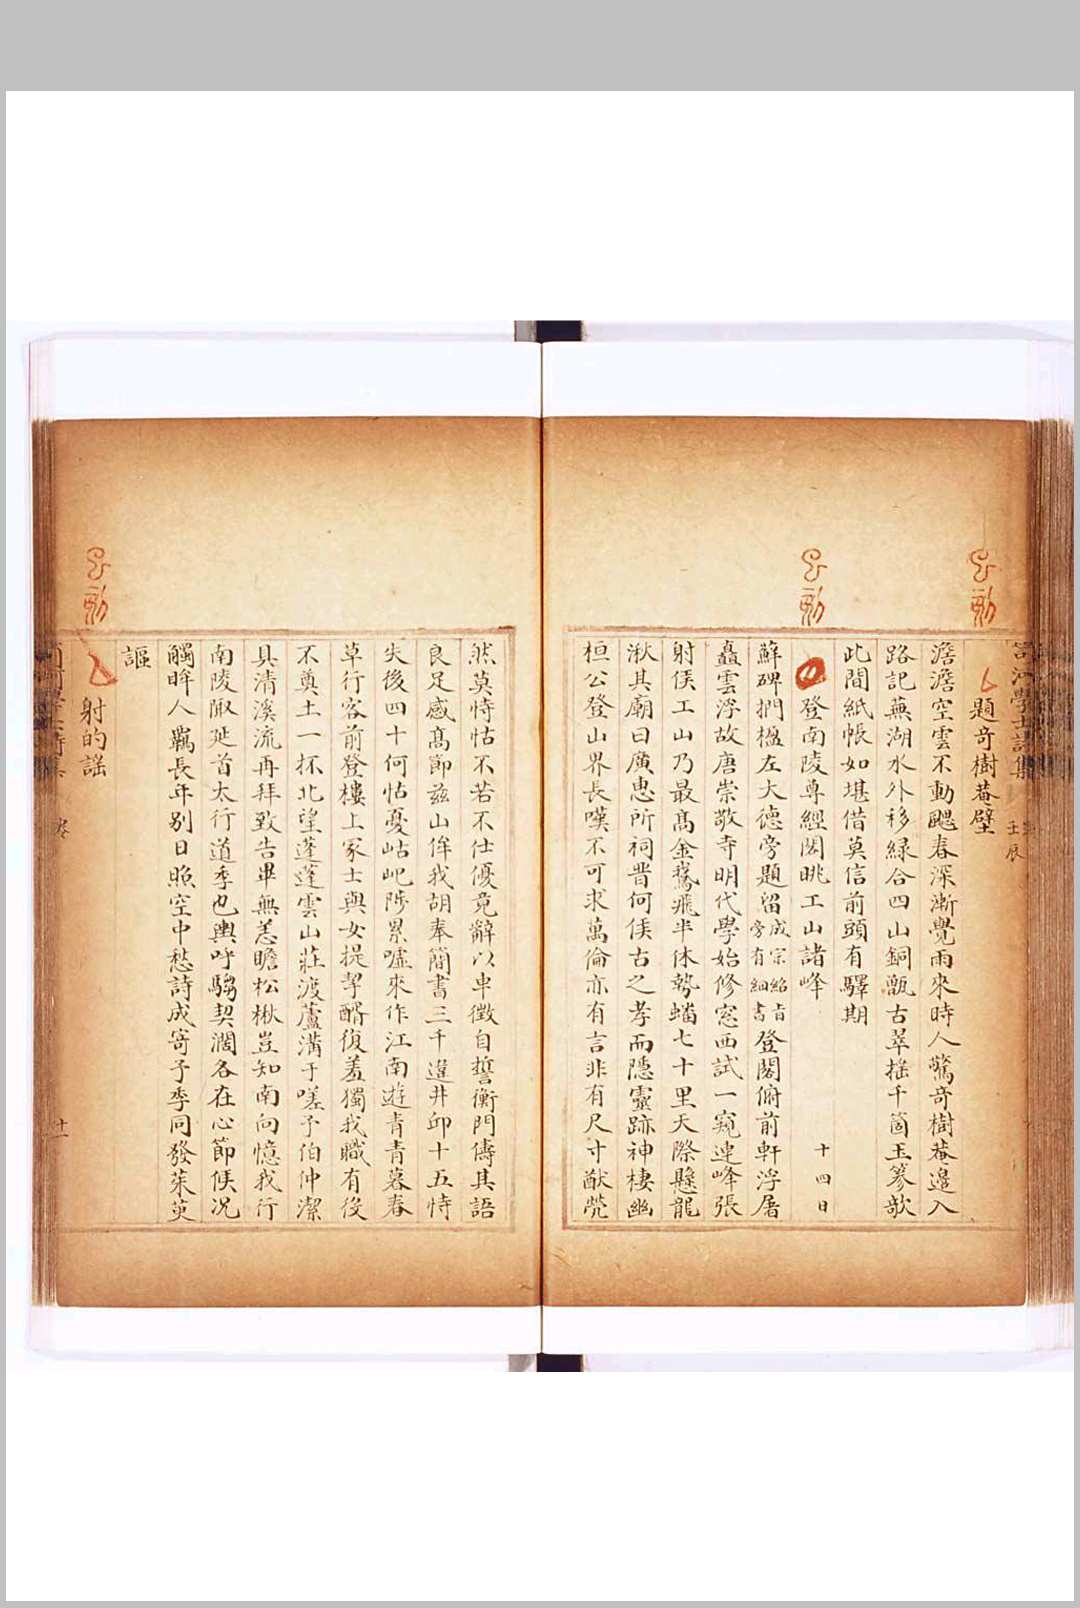 題奇樹菴壁
澹澹空雲不動颸春深漸覺雨來時人驚奇樹菴邊入
路記蕪湖水外移綠合四山銅甋古翠搖千箇玉篸歌
此間紙帳如堪借莫信前頭有驛期
登南陵尊經閣眺工山諸峰
十四日
蘇碑捫楹左大德旁題留成宗紹旨旁有細書登閣俯前軒浮屠
矗雲浮故唐崇敬寺明代學始修窓西試一窺連峰張
射侯工山乃最高金鵞飛半休勢蟠七十里天際懸龍
湫其廟曰廣惠所祠晋何侯古之孝而隱靈跡神棲幽
桓公登山界長嘆不可求萬倫亦有言非有尺寸猷甇
然莫恃怙不若不仕優竟辭以車徵自誓衡門儔其語
良足感高節兹山侔我胡奉簡書三千違井邱十五恃
失後四十何怙憂岵屺陟累嘘來作江南遊青青暮春
草行客前登樓上冢士與女提挈醑復羞獨我職有役
不奠土一抔北望蓬蓬雲山莊渡蘆溝于嗟予伯仲潔
具清溪流再拜致告畢無恙瞻松楸豈知南向憶我行
南陵陬延首太行道季也輿呼騶契濶各在心節候况
觸眸人羈長年别日照空中愁詩成寄予季同發茱萸
謳
射的謡
卷
十一